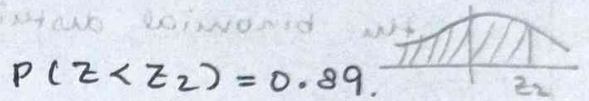 P(Z < Z₂) = 0.89.
Z₂